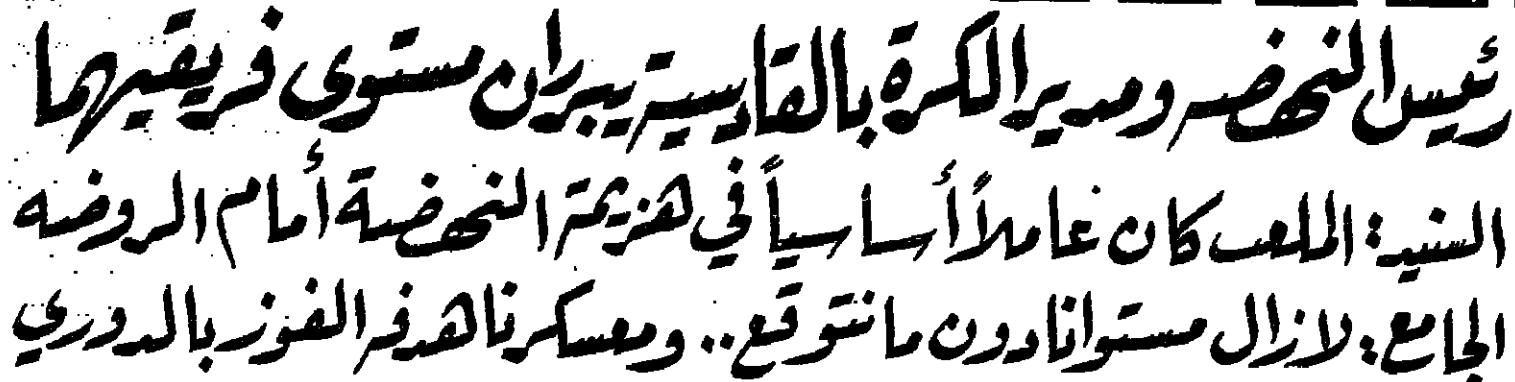 رئيس النهضه ومدير الكرة بالقادسية يبرران مستوى فريقيهما
السنيد: الملعب كان عاملاً أساسياً في هزيمة النهضة أمام الروضه
الجامع: لازال مستوانا دون ما نتوقع.. ومعسكرنا هدفه الفوز بالدوري